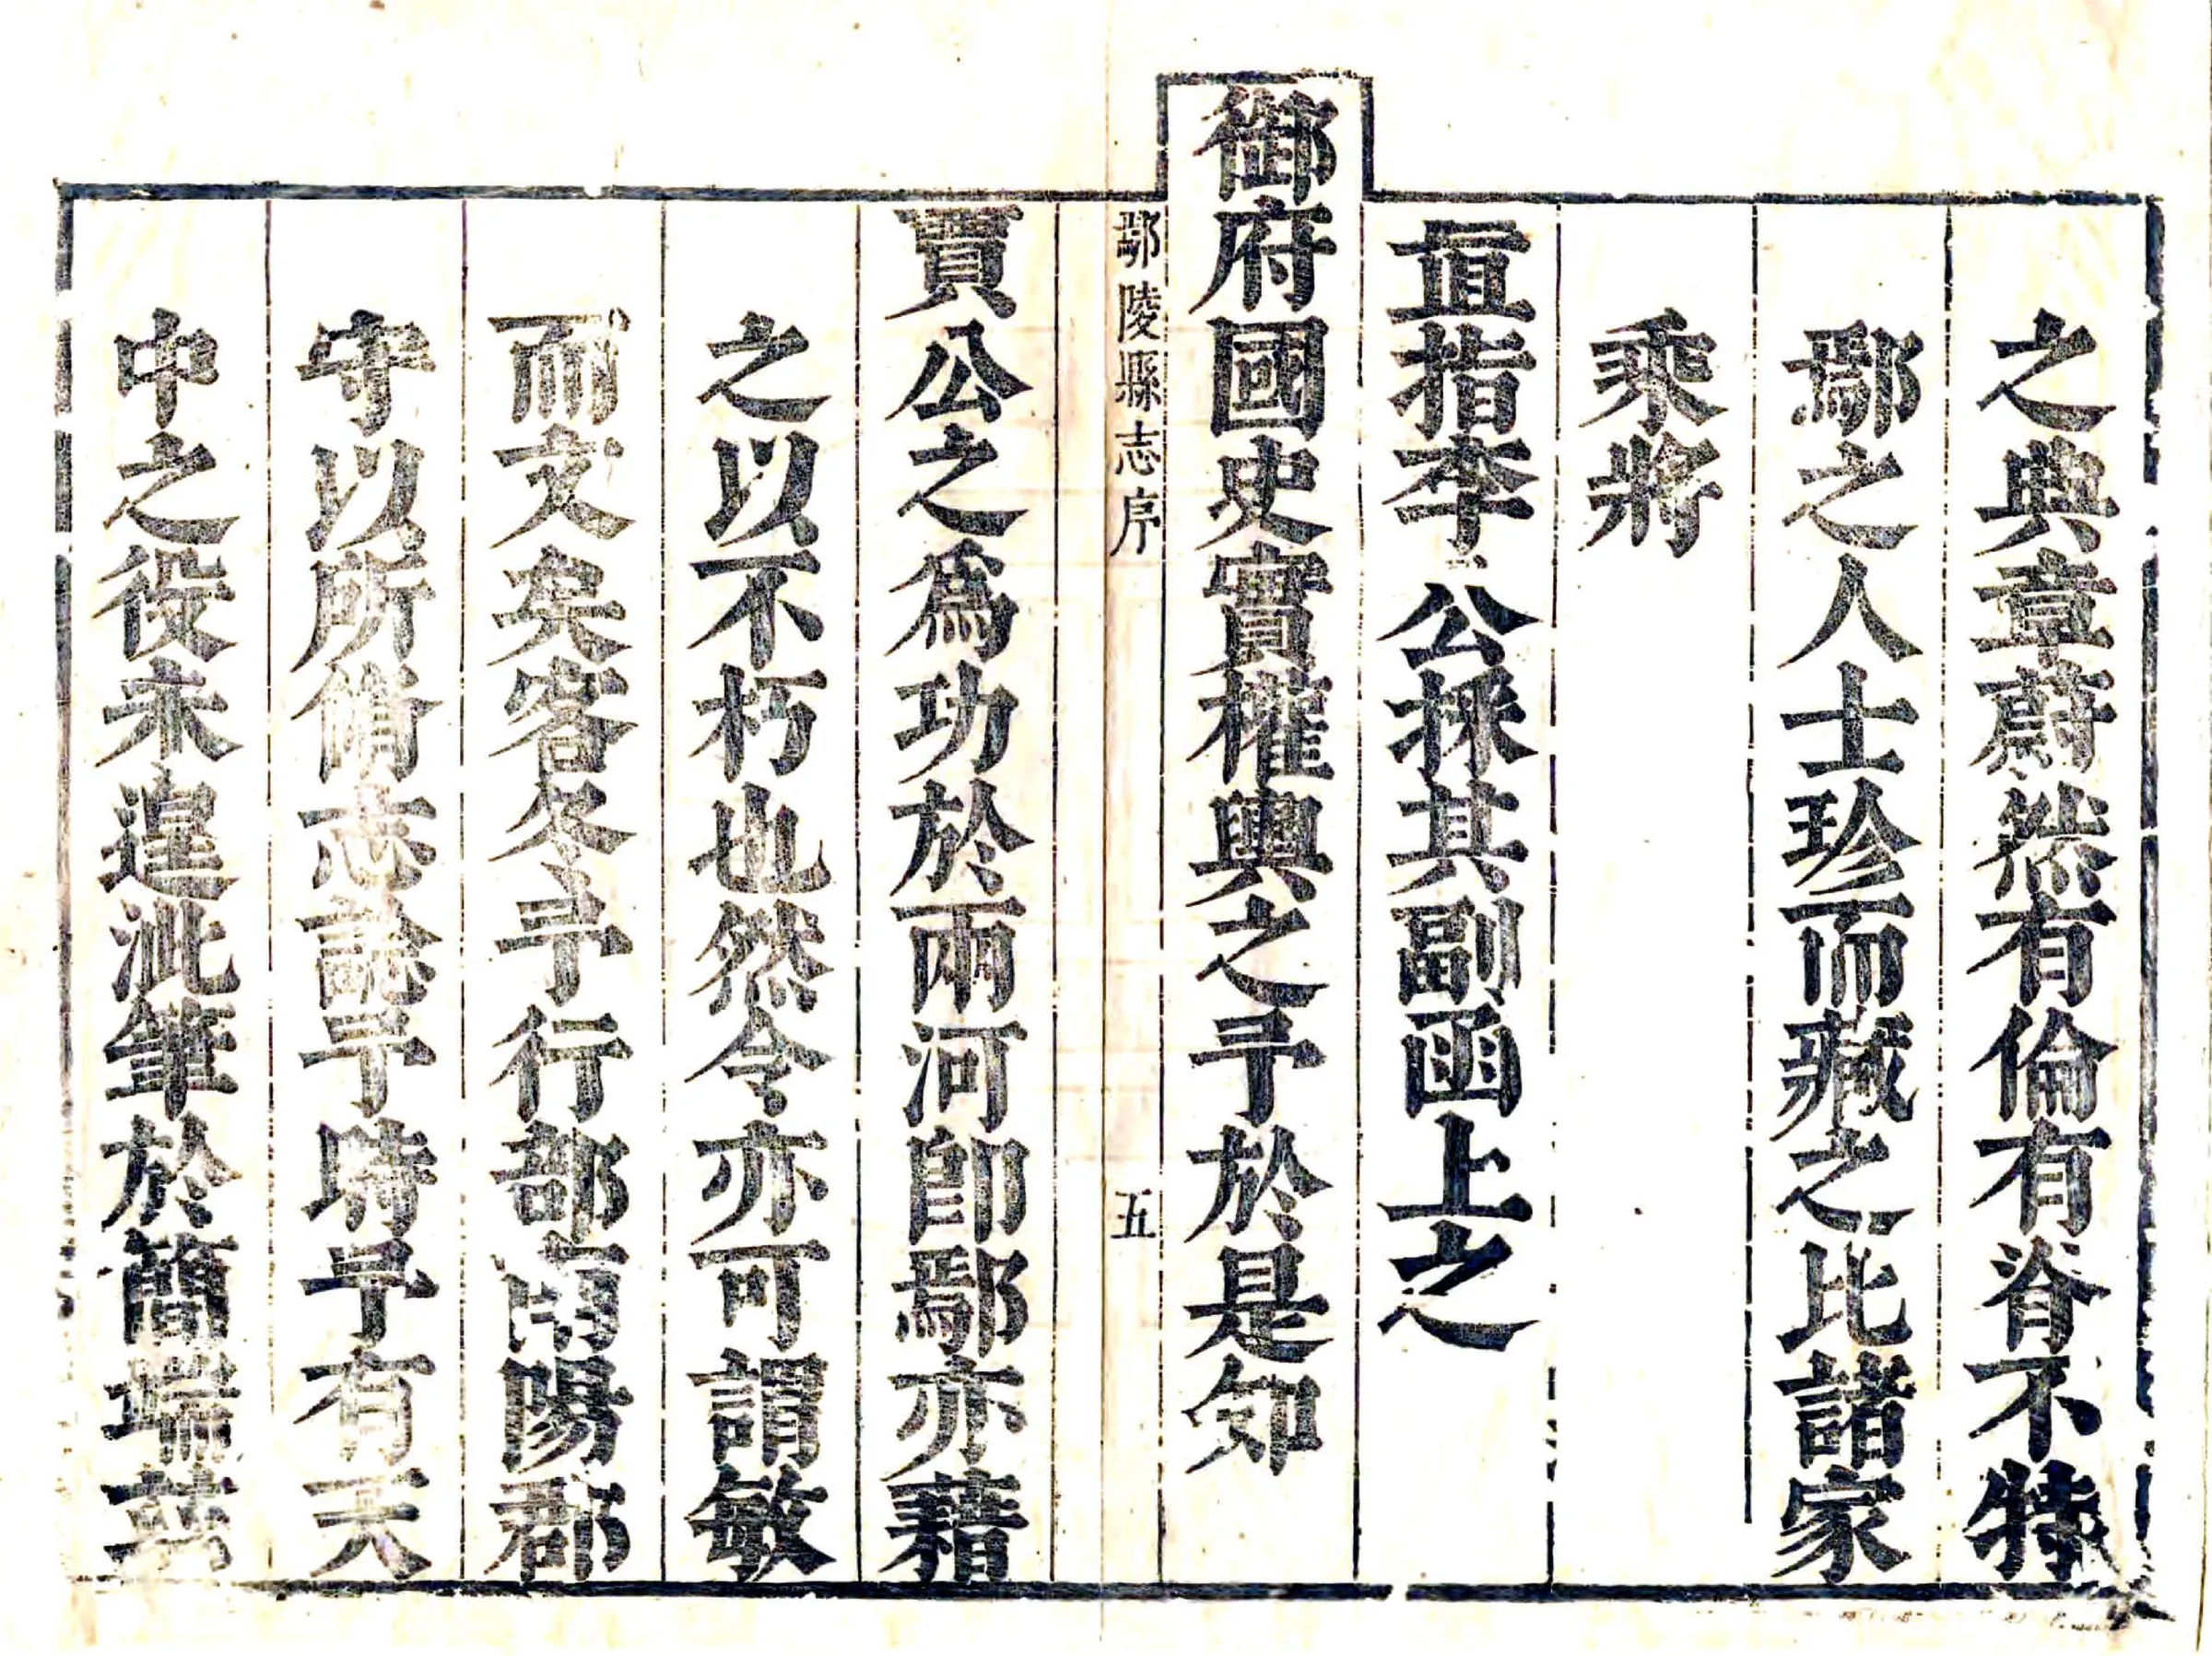 之典章蔚然有倫有脊不特
鄢之人士珍而藏之比諸家
乘將
直指李公採其副函上之
御府國史實權輿之乎於是知
鄢陵縣志序
五
賈公之為功於兩河卽鄢亦藉
之以不朽也然令亦可謂敏
而文矣客冬予行部南陽郡
守以所脩志諗予時予有天
中之役未遑泚筆於簡端茲